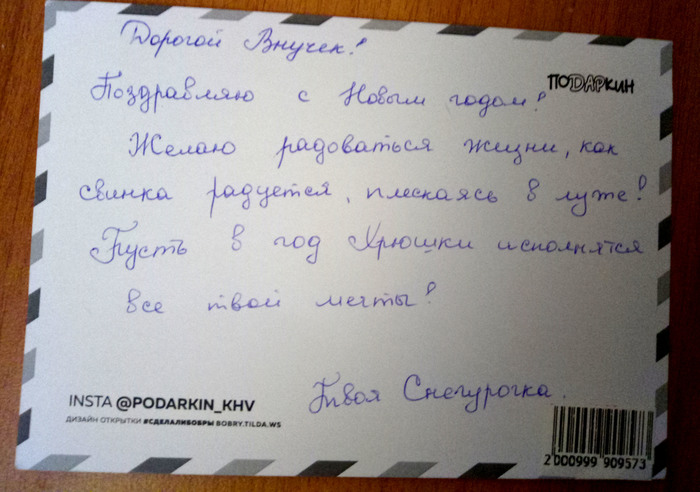 Дорогой Внучек!
ПОДАРКИН
Поздравляю с Новым годом!
Желаю радоваться жизни, как
свинка радуется, плескаясь в луже!
Пусть в год Хрюшки исполнятся
все твои мечты!
Твоя Снегурочка.
INSTA @PODARKIN_KHV
ДИЗАЙН ОТКРЫТКИ #СДЕЛАЛИБОБРЫ BOBRY.TILDA.WS
2 000999 909573